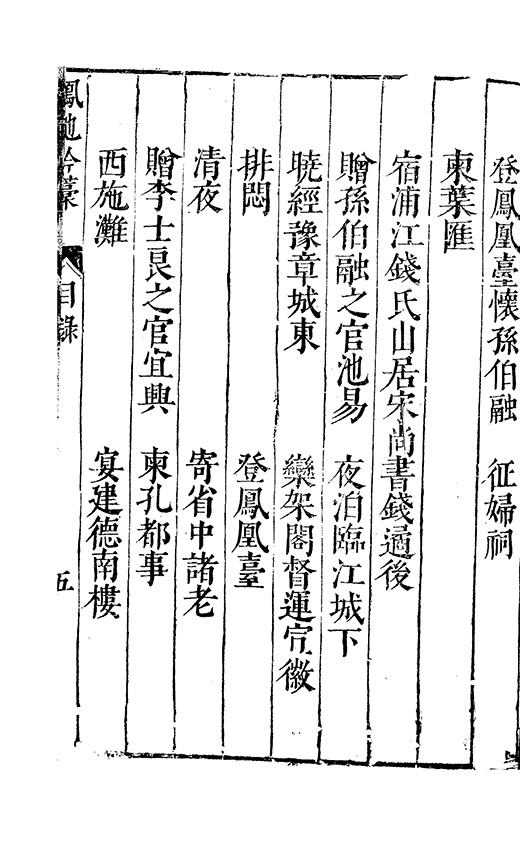 登鳳凰臺懷孫伯融　征婦祠
柬葉匯
宿浦江錢氏山居宋尚書錢遹後
贈孫伯融之官池昜　夜泊臨江城下
曉經豫章城東　欒架閣督運宣徽
排悶　登鳳凰臺
清夜　寄省中諸老
贈李士良之官宜興　柬孔都事
西施灘　宴建德南樓
鳳池吟藁　目錄　五